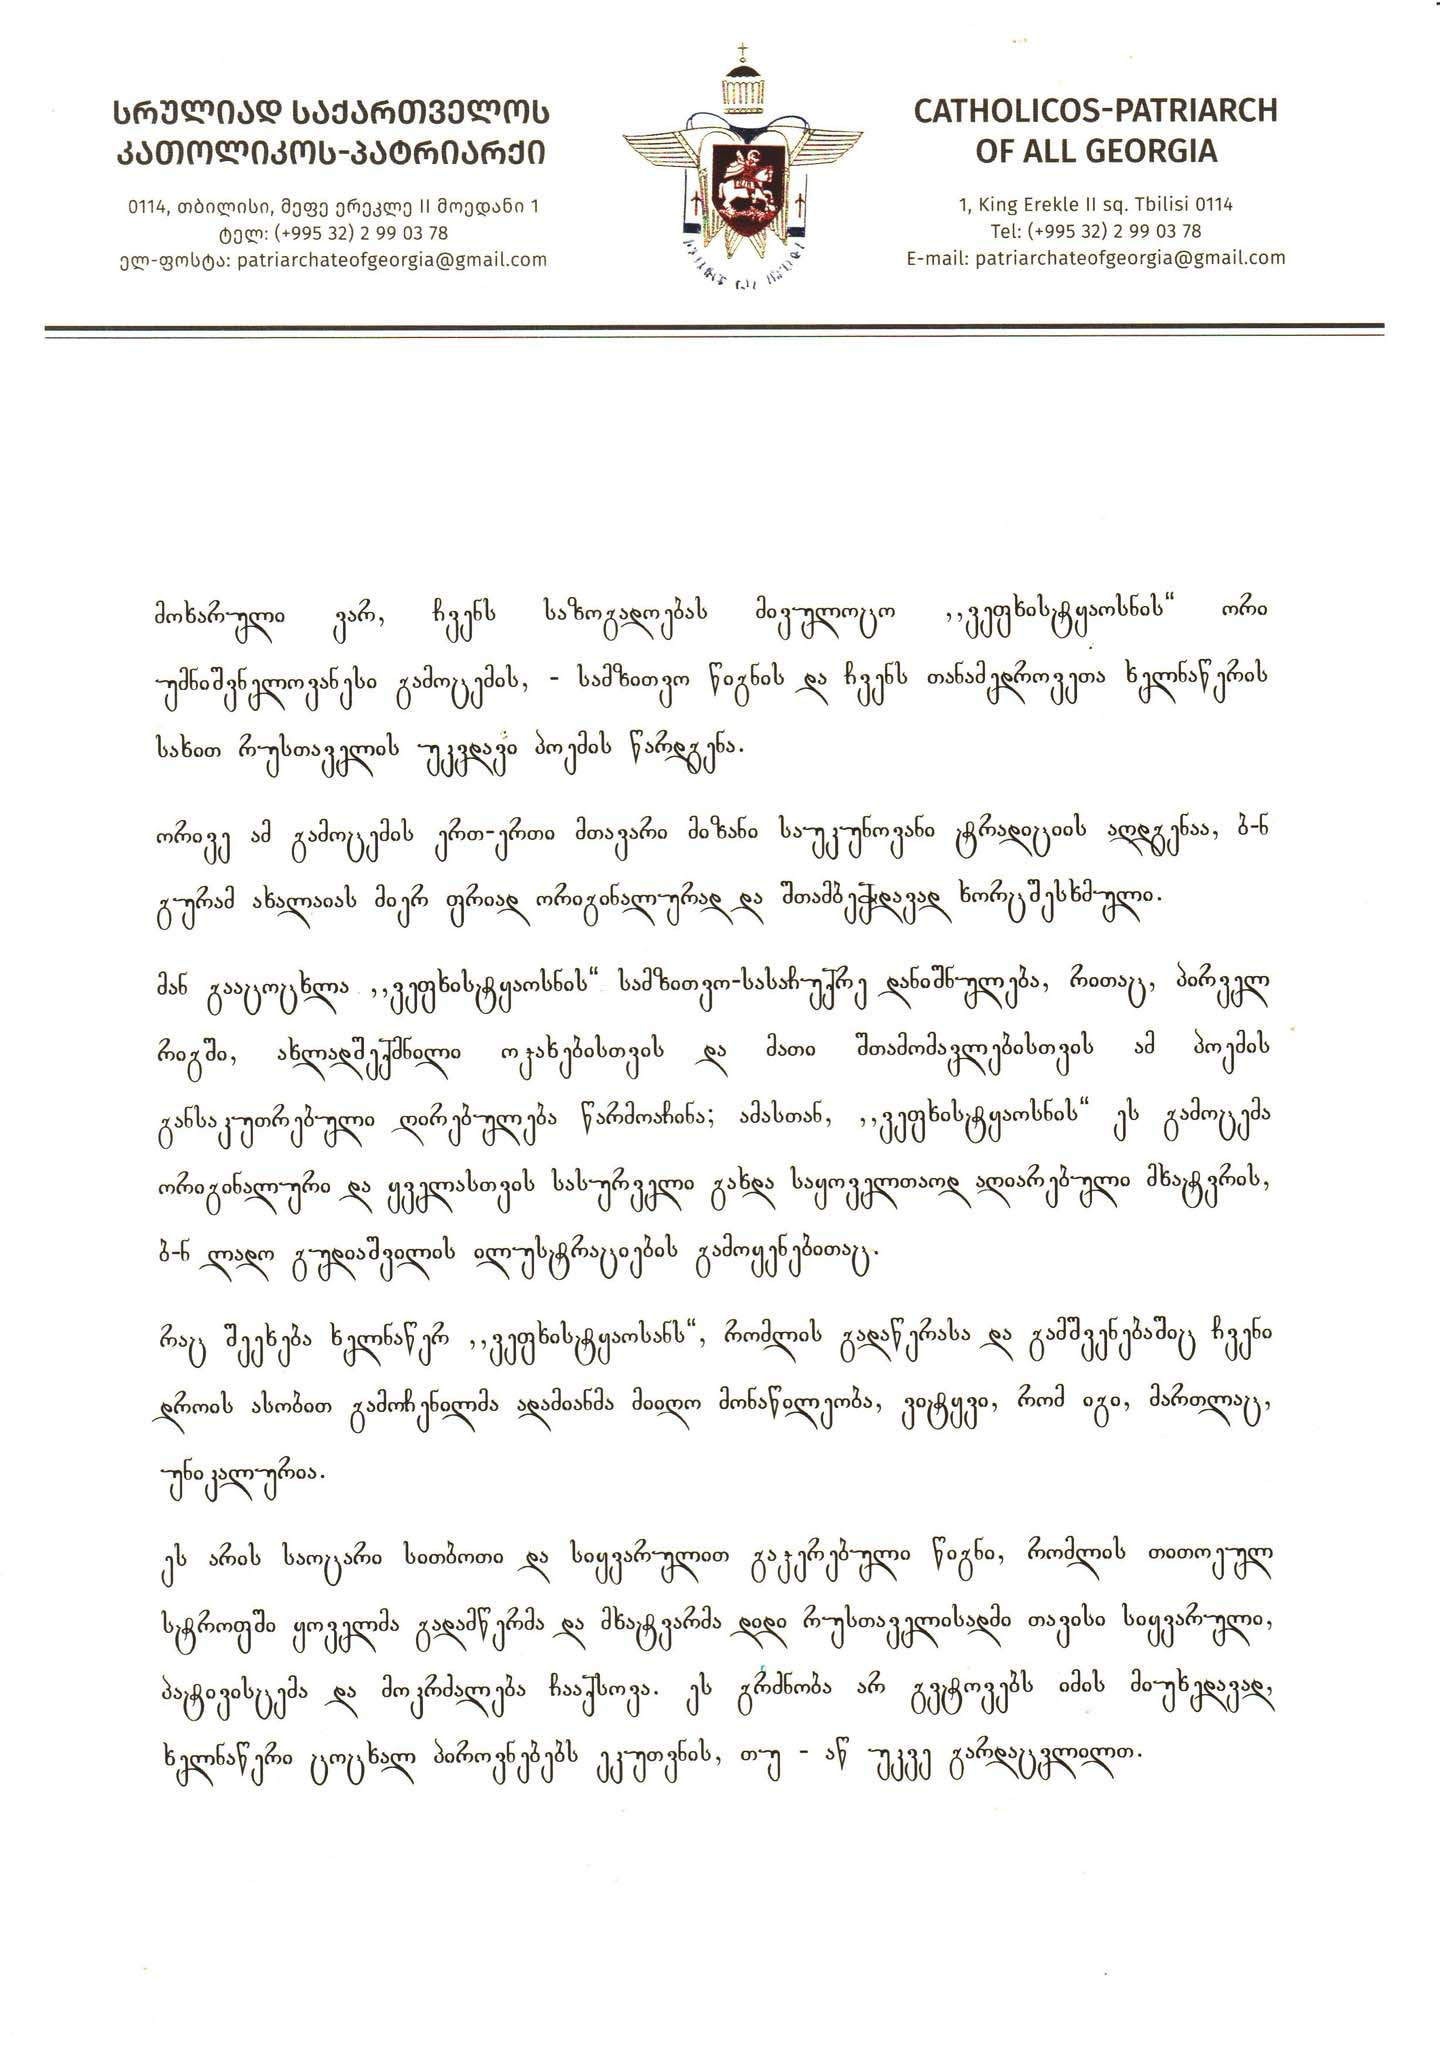 ᲡᲠᲣᲚᲘᲐᲓ ᲡᲐᲥᲐᲠᲗᲕᲔᲚᲝᲡ
ᲙᲐᲗᲝᲚᲘᲙᲝᲡ-ᲞᲐᲢᲠᲘᲐᲠᲥᲘ
0114, თბილისი, მეფე ერეკლე II მოედანი 1
ტელ: (+995 32) 2 99 03 78
ელ-ფოსტა: patriarchateofgeorgia@gmail.com
CATHOLICOS-PATRIARCH
OF ALL GEORGIA
1, King Erekle II sq. Tbilisi 0114
Tel: (+995 32) 2 99 03 78
E-mail: patriarchateofgeorgia@gmail.com
მოხარული ვარ, ჩვენს საზოგადოებას მივულოცო ,,ვეფხისტყაოსნის“ ორი
უმნიშვნელოვანესი გამოცემის, - სამზითვო წიგნის და ჩვენს თანამედროვეთა ხელნაწერის
სახით რუსთაველის უკვდავი პოემის წარდგენა.
ორივე ამ გამოცემის ერთ-ერთი მთავარი მიზანი საუკუნოვანი ტრადიციის აღდგენაა, ბ-ნ
გურამ ახალაიას მიერ ფრიად ორიგინალურად და შთამბეჭდავად ხორცშესხმული.
მან გააცოცხლა ,,ვეფხისტყაოსნის“ სამზითვო-სასაჩუქრე დანიშნულება, რითაც, პირველ
რიგში, ახლადშექმნილი ოჯახებისთვის და მათი შთამომავლებისთვის ამ პოემის
განსაკუთრებული ღირებულება წარმოაჩინა; ამასთან, ,,ვეფხისტყაოსნის“ ეს გამოცემა
ორიგინალური და ყველასთვის სასურველი გახდა საყოველთაოდ აღიარებული მხატვრის,
ბ-ნ ლადო გუდიაშვილის ილუსტრაციების გამოყენებითაც.
რაც შეეხება ხელნაწერ ,,ვეფხისტყაოსანს“, რომლის გადაწერასა და გამშვენებაშიც ჩვენი
დროის ასობით გამოჩენილმა ადამიანმა მიიღო მონაწილეობა, ვიტყვი, რომ იგი, მართლაც,
უნიკალურია.
ეს არის საოცარი სითბოთი და სიყვარულით გაჯერებული წიგნი, რომლის თითოეულ
სტროფში ყოველმა გადამწერმა და მხატვარმა დიდი რუსთაველისადმი თავისი სიყვარული,
პატივისცემა და მოკრძალება ჩააქსოვა. ეს გრძნობა არ გვტოვებს იმის მიუხედავად,
ხელნაწერი ცოცხალ პიროვნებებს ეკუთვნის, თუ - აწ უკვე გარდაცვლილთ.